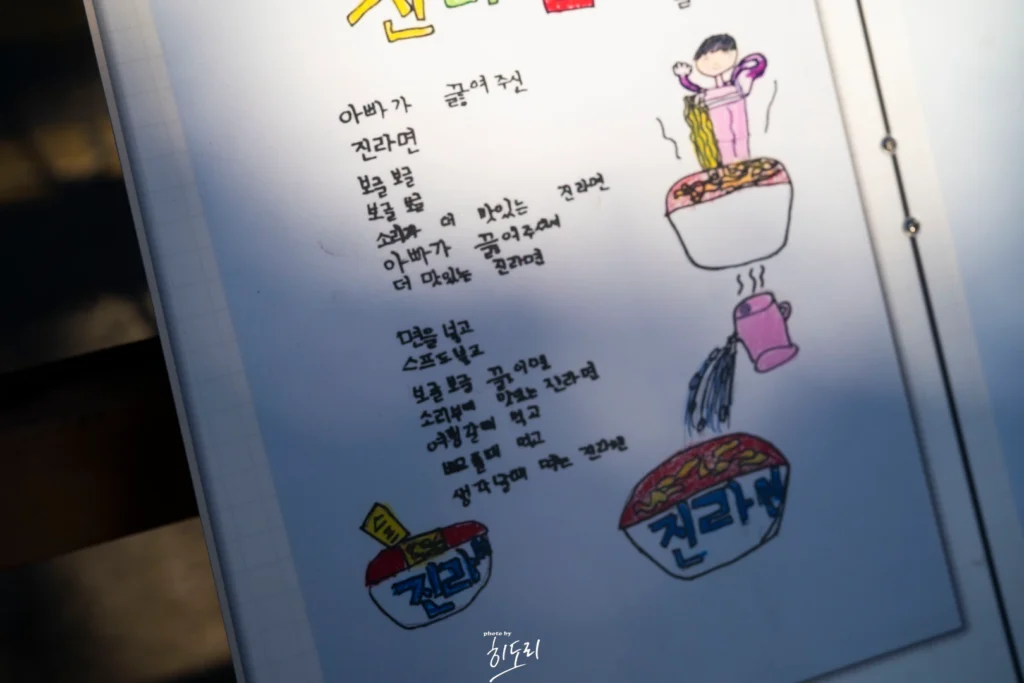 진라면
아빠가 끓여주신
진라면
보글 보글
보글 보글
소리가 더 맛있는 진라면
아빠가 끓여주셔서
더 맛있는 진라면
면을 넣고
스프도 넣고
보글 보글 끓이면
소리부터 맛있는 진라면
여행갈때 먹고
배고플때 먹고
생각날때 먹는 진라면
진라면
스프
진라면
photo by
히도리